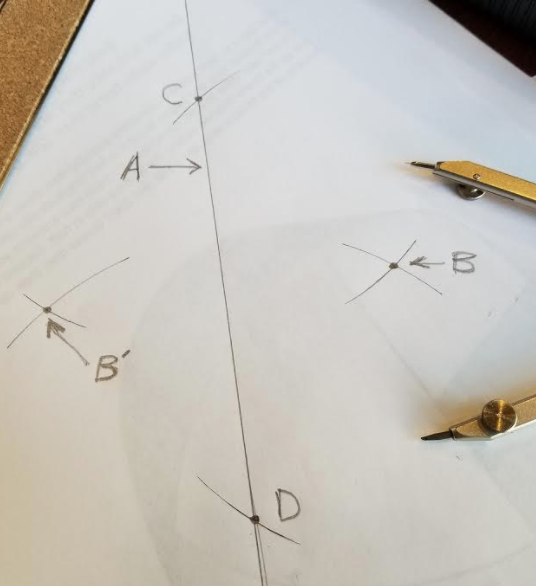 C
A
B
B'
D